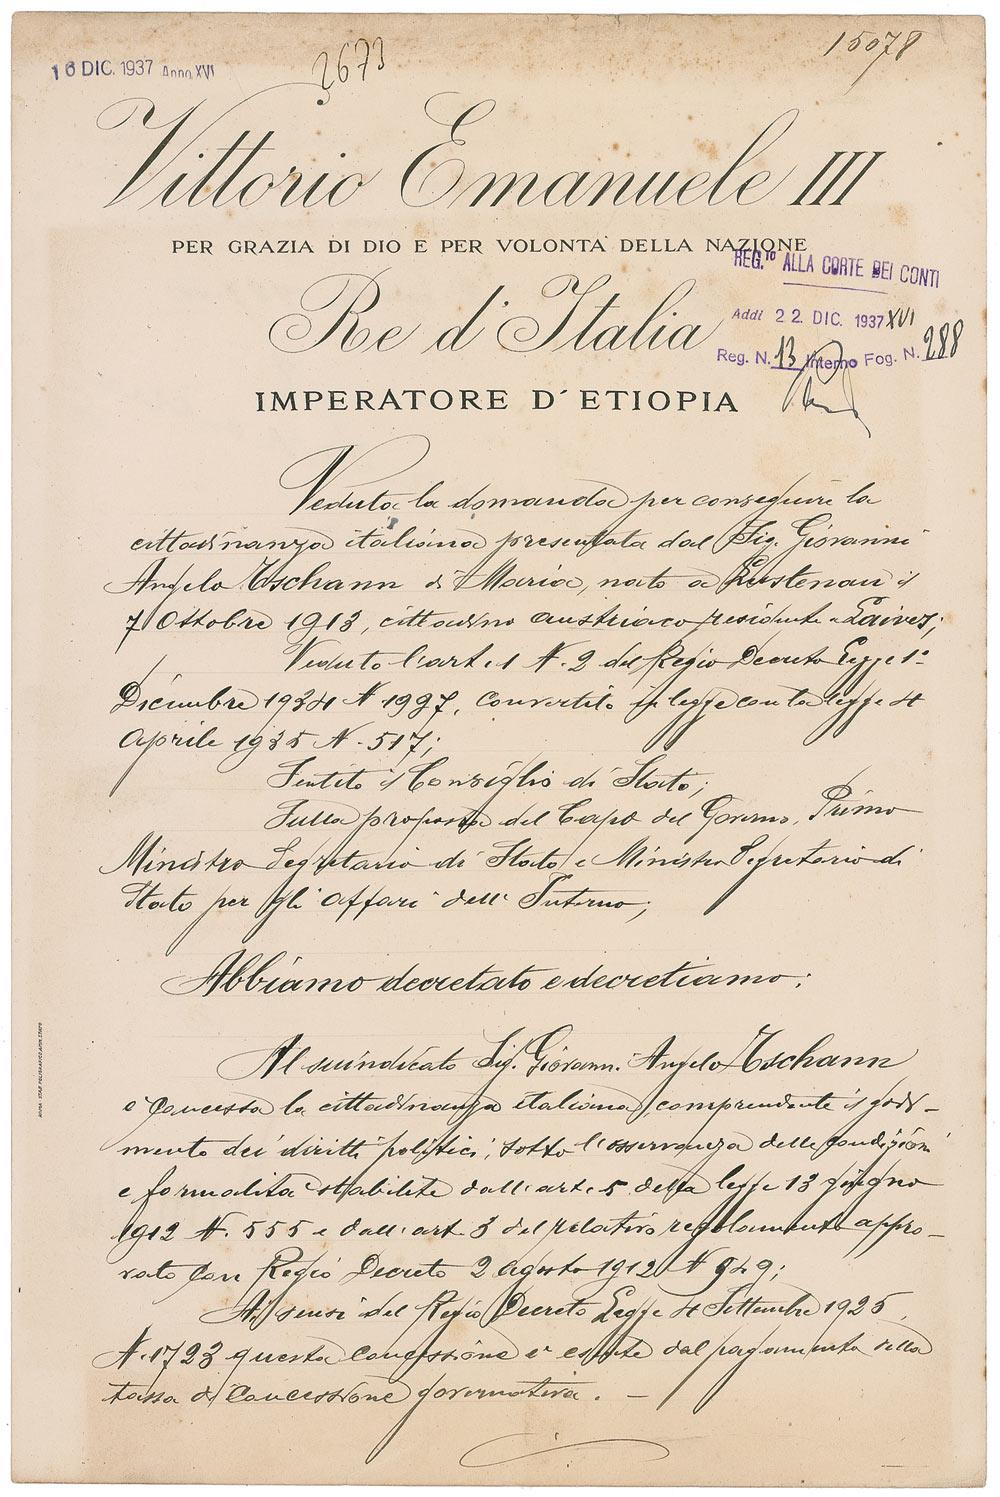 16 DIC. 1937 Anno XVI
2673
15078
Vittorio Emanuele III
PER GRAZIA DI DIO E PER VOLONTÀ DELLA NAZIONE
REG.TO ALLA CORTE DEI CONTI
Re d'Italia
Addì 22. DIC. 1937 XVI
Reg. N. 13 Interno Fog. N. 288
IMPERATORE D'ETIOPIA
Veduta la domanda per conseguire la
cittadinanza italiana presentata dal Sig. Giovanni
Angelo Tschann di Maria, nato a Lustenau il
7 Ottobre 1913, cittadino austriaco residente a Laives;
Veduto l'art. 1 N. 2 del Regio Decreto Legge 1°
Dicembre 1934 N 1997, convertito in legge con la legge 4
Aprile 1935 N. 517;
Sentito il Consiglio di Stato;
Sulla proposta del Capo del Governo, Primo
Ministro Segretario di Stato e Ministro Segretario di
Stato per gli affari dell'Interno;
Abbiamo decretato e decretiamo:
Al suindicato Sig. Giovanni Angelo Tschann
è concessa la cittadinanza italiana comprendente il godi-
mento dei diritti politici, sotto l'osservanza delle condizioni
e formalità stabilite dall'art. 5 della legge 13 giugno
1912 N. 555 e dall'art. 3 del relativo regolamento appro-
vato con Regio Decreto 2 agosto 1912 N 949;
Ai sensi del Regio Decreto Legge 4 Settembre 1925
N. 1723 questa concessione è esente dal pagamento della
tassa di concessione governativa. —